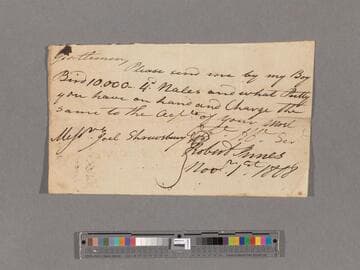 Gentlemen,
Please send me by my Boy
Bird 10,000 4d. Nales and what Putty
you have on hand and Charge the
same to the of your Most
Ser
Messrs Joel Shrewsbury
Robert Innes
Novr. 1st 1808